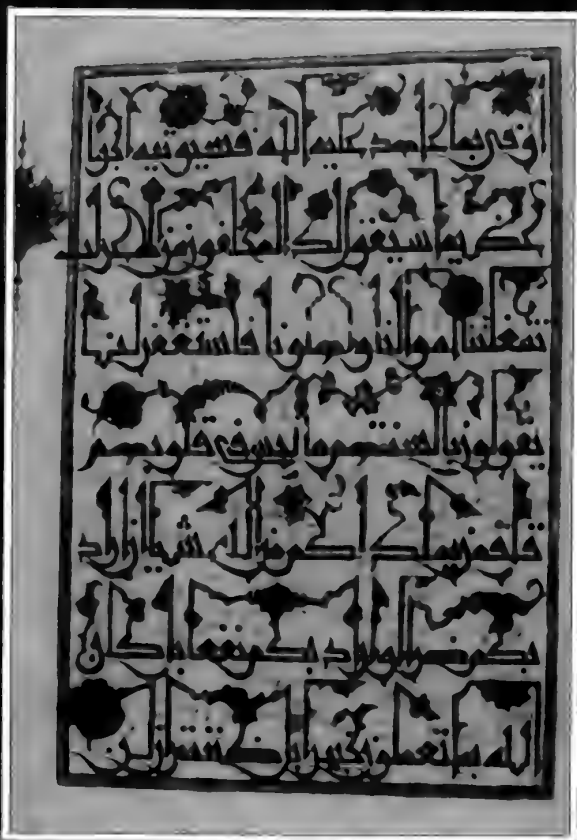 اوفى بما عهد عليه الله فسيوتيه اجرا
عظيما سيقول لك المخلفون من الاعراب
شغلتنا اموالنا واهلونا فاستغفر لنا
يقولون بالسنتهم ما ليس فى قلوبهم
قل فمن يملك لكم من الله شيا ان اراد
بكم ضرا او اراد بكم نفعا بل كان
الله بما تعملون خبيرا بل ظننتم ان لن